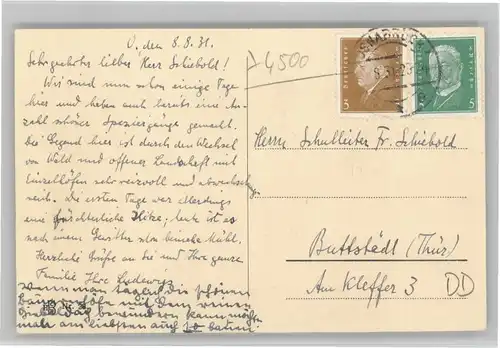 O., den 8.8.31.
Sehr geehrter lieber Herr Schiebold!
Wir sind nun schon einige Tage
hier und haben auch bereits eine An-
zahl schöner Spaziergänge gemacht.
Die Gegend hier ist durch den Wechsel
von Wald und offener Landschaft mit
Einzelhöfen sehr reizvoll und abwechslungs-
reich. Die ersten Tage war allerdings
eine fürchterliche Hitze, heute ist es
nach einem Gewitter schon beinahe kühl.
Herzliche Grüße an Sie und Ihre ganze
Familie Ihre Ludewigs
wenn man tagein die schönen
mit dem
bewundern kann möchte
mal am liebsten auf
4500
OSNABRÜCK
Deutsches Reich
3
5
Herrn Schulleiter Fr. Schiebold
Buttstädt (Thür)
Am Kleffer 3
DD